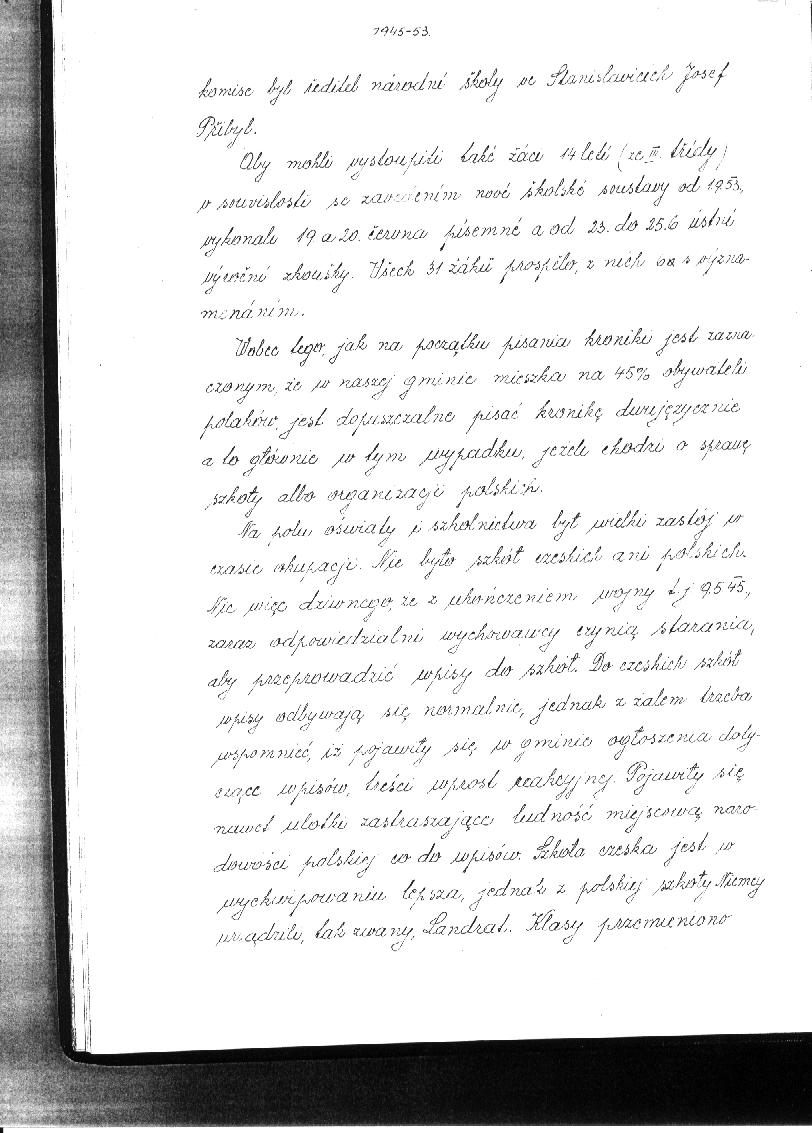 1945-53.
komise byl ředitel národní školy ve Stanislavicích Josef
Přibyl.
Aby mohli vystoupiti také žáci 14 letí (ze III. třídy)
v souvislosti se zavedením nové školské soustavy od 1953,
vykonali 19 a 20. června písemné a od 23. do 25.6 ústní
výroční zkoušky. Všech 31 žáků prospělo, z nich 6 s význa-
menáním.
Wobec tego, jak na początku pisania kroniki jest zazna
czonym, że w naszej gminie mieszka na 45% obywateli
polaków, jest dopuszczalne pisać kronikę dwujęzycznie
a to głównie w tym wypadku, jeżeli chodzi o sprawę
szkoły albo organizacji polskich.
Na polu oświaty i szkolnictwa był wielki zastój w
czasie okupacji. Nie było szkół czeskich ani polskich.
Nic więc dziwnego, że z ukończeniem wojny t.j 9.5 45,
zaraz odpowiedzialni wychowawcy czynią starania,
aby przeprowadzić wpisy do szkół. Do czeskich szkół
wpisy odbywają się normalnie, jednak z żalem trzeba
wspomnieć, iż pojawiły się w gminie ogłoszenia doty-
czące wpisów, treści wprost reakcyjnej. Pojawiły się
nawet ulotki zastraszające ludność miejscową naro-
dowości polskiej co do wpisów. Szkoła czeska jest w
wyekwipowaniu lepsza, jednak z polskiej szkoły Niemcy
urządzili, tak zwany, Landrat. Klasy przemieniono